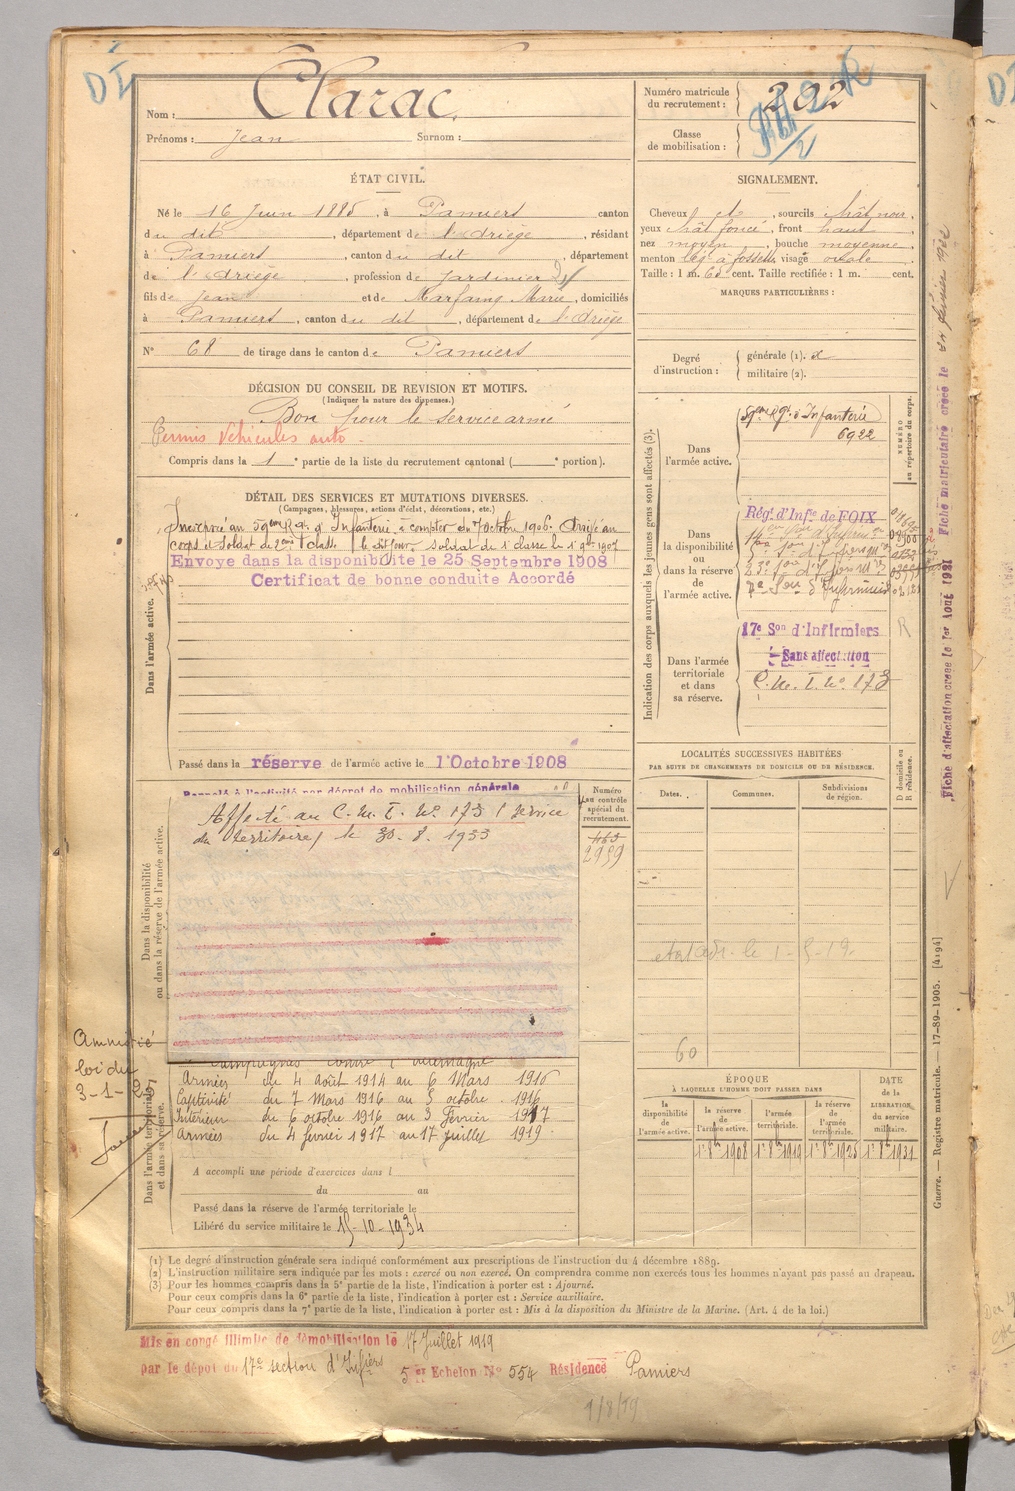 DI
Nom : Clarac.
Prénoms : Jean Surnom :
ÉTAT CIVIL.
Né le 16 Juin 1885, à Pamiers canton
du dit, département de l'Ariège, résidant
à Pamiers, canton du dit, département
de l'Ariège, profession de Jardinier
fils de Jean et de Marfaing Marie, domiciliés
à Pamiers, canton du dit, département de l'Ariège
N° 68 de tirage dans le canton de Pamiers
DÉCISION DU CONSEIL DE REVISION ET MOTIFS.
(Indiquer la nature des dispenses.)
Bon pour le service armé
Permis Véhicules auto
Compris dans la 1e partie de la liste du recrutement cantonal ( e portion).
DÉTAIL DES SERVICES ET MUTATIONS DIVERSES.
(Campagnes, blessures, actions d'éclat, décorations, etc.)
Incorporé au 59ème Rgt d'Infanterie à compter du 7 octobre 1906. Arrivé au
corps et Soldat de 2ème classe le dit jour. Soldat de 1e classe le 1er 1907
Envoyé dans la disponibilité le 25 Septembre 1908
Certificat de bonne conduite Accordé
Dans l'armée active.
Passé dans la réserve de l'armée active le 1 Octobre 1908
Rappelé à l'activité par décret de mobilisation générale
Dans la disponibilité
ou dans la réserve de l'armée active.
Affecté au C.M.I. N° 173 (service
du territoire) le 30-8-1933
Amnistié
loi du
3-1-2
Dans l'armée territoriale
et dans sa réserve.
Campagnes contre l'Allemagne
Armées du 4 août 1914 au 6 Mars 1916
Captivité du 7 Mars 1916 au 5 octobre 1916
Intérieur du 6 octobre 1916 au 3 Février 1917
Armées du 4 février 1917 au 17 juillet 1919
A accompli une période d'exercices dans l
du au
Passé dans la réserve de l'armée territoriale le
Libéré du service militaire le 15-10-1934
Numéro
au contrôle
spécial du
recrutement.
463
2959
Numéro matricule
du recrutement : 202
Classe
de mobilisation :
SIGNALEMENT.
Cheveux et, sourcils chât noir,
yeux chât foncé, front haut
nez moyen, bouche moyenne
menton lég à fossette visage ovale
Taille : 1 m. 60 cent. Taille rectifiée : 1 m. cent.
MARQUES PARTICULIÈRES :
Degré
d'instruction :
générale (1). 2
militaire (2).
Indication des corps auxquels les jeunes gens sont affectés (3).
NUMÉRO
au répertoire du corps.
Dans
l'armée active.
59ème Rgt d'Infanterie
6922
Dans
la disponibilité
ou
dans la réserve
de
l'armée active.
Rég. d'Infie de FOIX
R
Dans l'armée
territoriale
et dans
sa réserve.
17e Son d'Infirmiers
Sans affectation
C.M.I. N° 173
LOCALITÉS SUCCESSIVES HABITÉES
PAR SUITE DE CHANGEMENTS DE DOMICILE OU DE RÉSIDENCE.
Dates.
Communes.
Subdivisions
de région.
D domicile ou
R résidence.
le 1-5-19.
60
ÉPOQUE
À LAQUELLE L'HOMME DOIT PASSER DANS
DATE
de la
LIBÉRATION
du service
militaire.
la
disponibilité
de
l'armée active.
la réserve
de
l'armée active.
l'armée
territoriale.
la réserve
de
l'armée
territoriale.
1er 8bre 1908 1er 8bre 1919 1er 8bre 1925 1er 8bre 1931
(1) Le degré d'instruction générale sera indiqué conformément aux prescriptions de l'instruction du 4 décembre 1889.
(2) L'instruction militaire sera indiquée par les mots : exercé ou non exercé. On comprendra comme non exercés tous les hommes n'ayant pas passé au drapeau.
(3) Pour les hommes compris dans la 5e partie de la liste, l'indication à porter est : Ajourné.
Pour ceux compris dans la 6e partie de la liste, l'indication à porter est : Service auxiliaire.
Pour ceux compris dans la 7e partie de la liste, l'indication à porter est : Mis à la disposition du Ministre de la Marine. (Art. 4 de la loi.)
Mis en congé illimité de démobilisation le 17 Juillet 1919
par le dépôt du 17e section d'Infiers 5e Echelon N° 554 Résidence Pamiers
1/8/19
Guerre. — Registre matricule. — 17-89-1905. [4194]
Fiche d'affectation créée le 1er Août 1921
Fiche matriculaire créée le février 1922